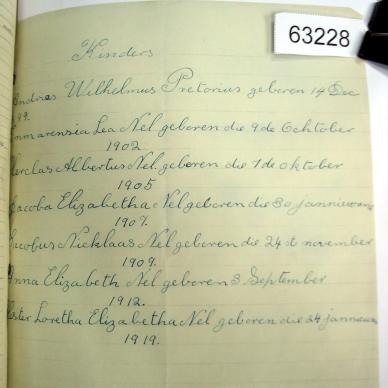 63228
Kinders
Andries Wilhelmus Pretorius geboren 14 Dec
99.
Emmarensia Lea Nel geboren die 9 de Ochtober
1902
Albertus Nel geboren die 7 de oktober
1905
Jacoba Elizabetha Nel geboren die 30 jannieware
1907.
Jacobus Nicklaas Nel geboren die 24 st november
1909.
Anna Elizabeth Nel geboren 3 September
1912.
Hester Loretha Elizabetha Nel geboren die 24 jannieware
1919.